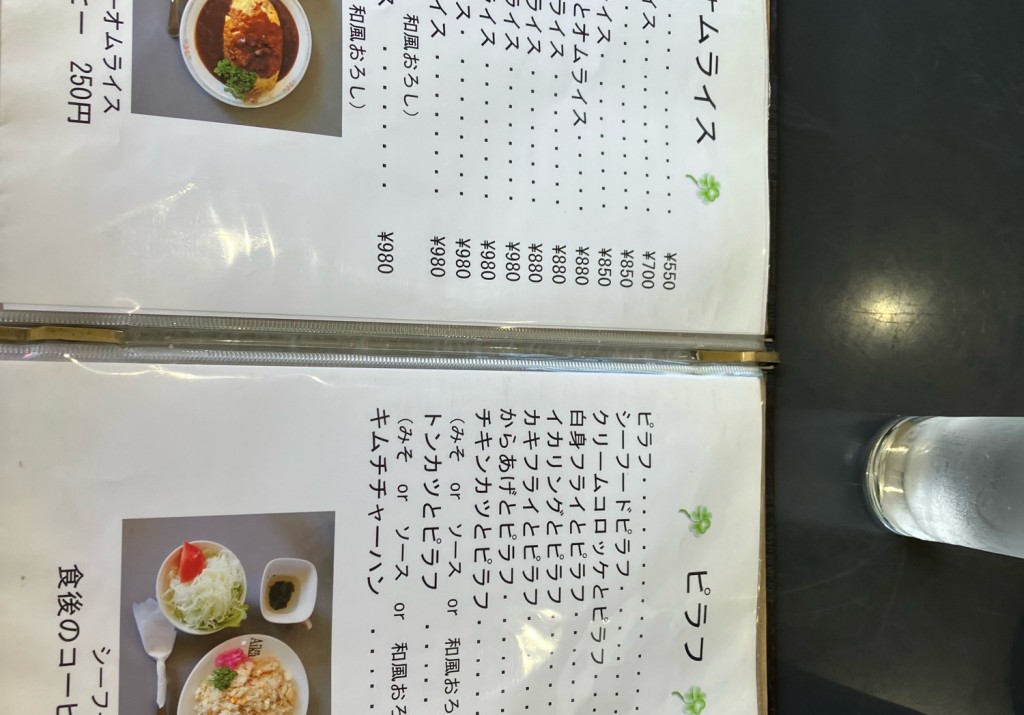 オムライス
イス . . . . . . . . . ¥550
. . . . . . . . . ¥700
. . . . . . . . . ¥850
イス . . . . . . . . ¥850
とオムライス . . . . ¥880
ライス . . . . . . ¥880
ライス . . . . . . ¥880
ライス . . . . . . ¥980
ライス . . . . . . ¥980
ス . . . . . . . . ¥980
和風おろし)
イス . . . . . . . ¥980
和風おろし)
ス . . . . . . . . ¥980
ーオムライス
ヒー 250円
ピラフ
ピラフ . . . . . . . . .
シーフードピラフ . . . . . .
クリームコロッケとピラフ . .
白身フライとピラフ . . . . .
イカリングとピラフ . . . . .
カキフライとピラフ . . . . .
からあげとピラフ . . . . . .
チキンカツとピラフ . . . . .
(みそ or ソース or 和風おろ
トンカツとピラフ . . . . .
(みそ or ソース or 和風おろ
キムチチャーハン . . . .
シーフ
食後のコーヒ